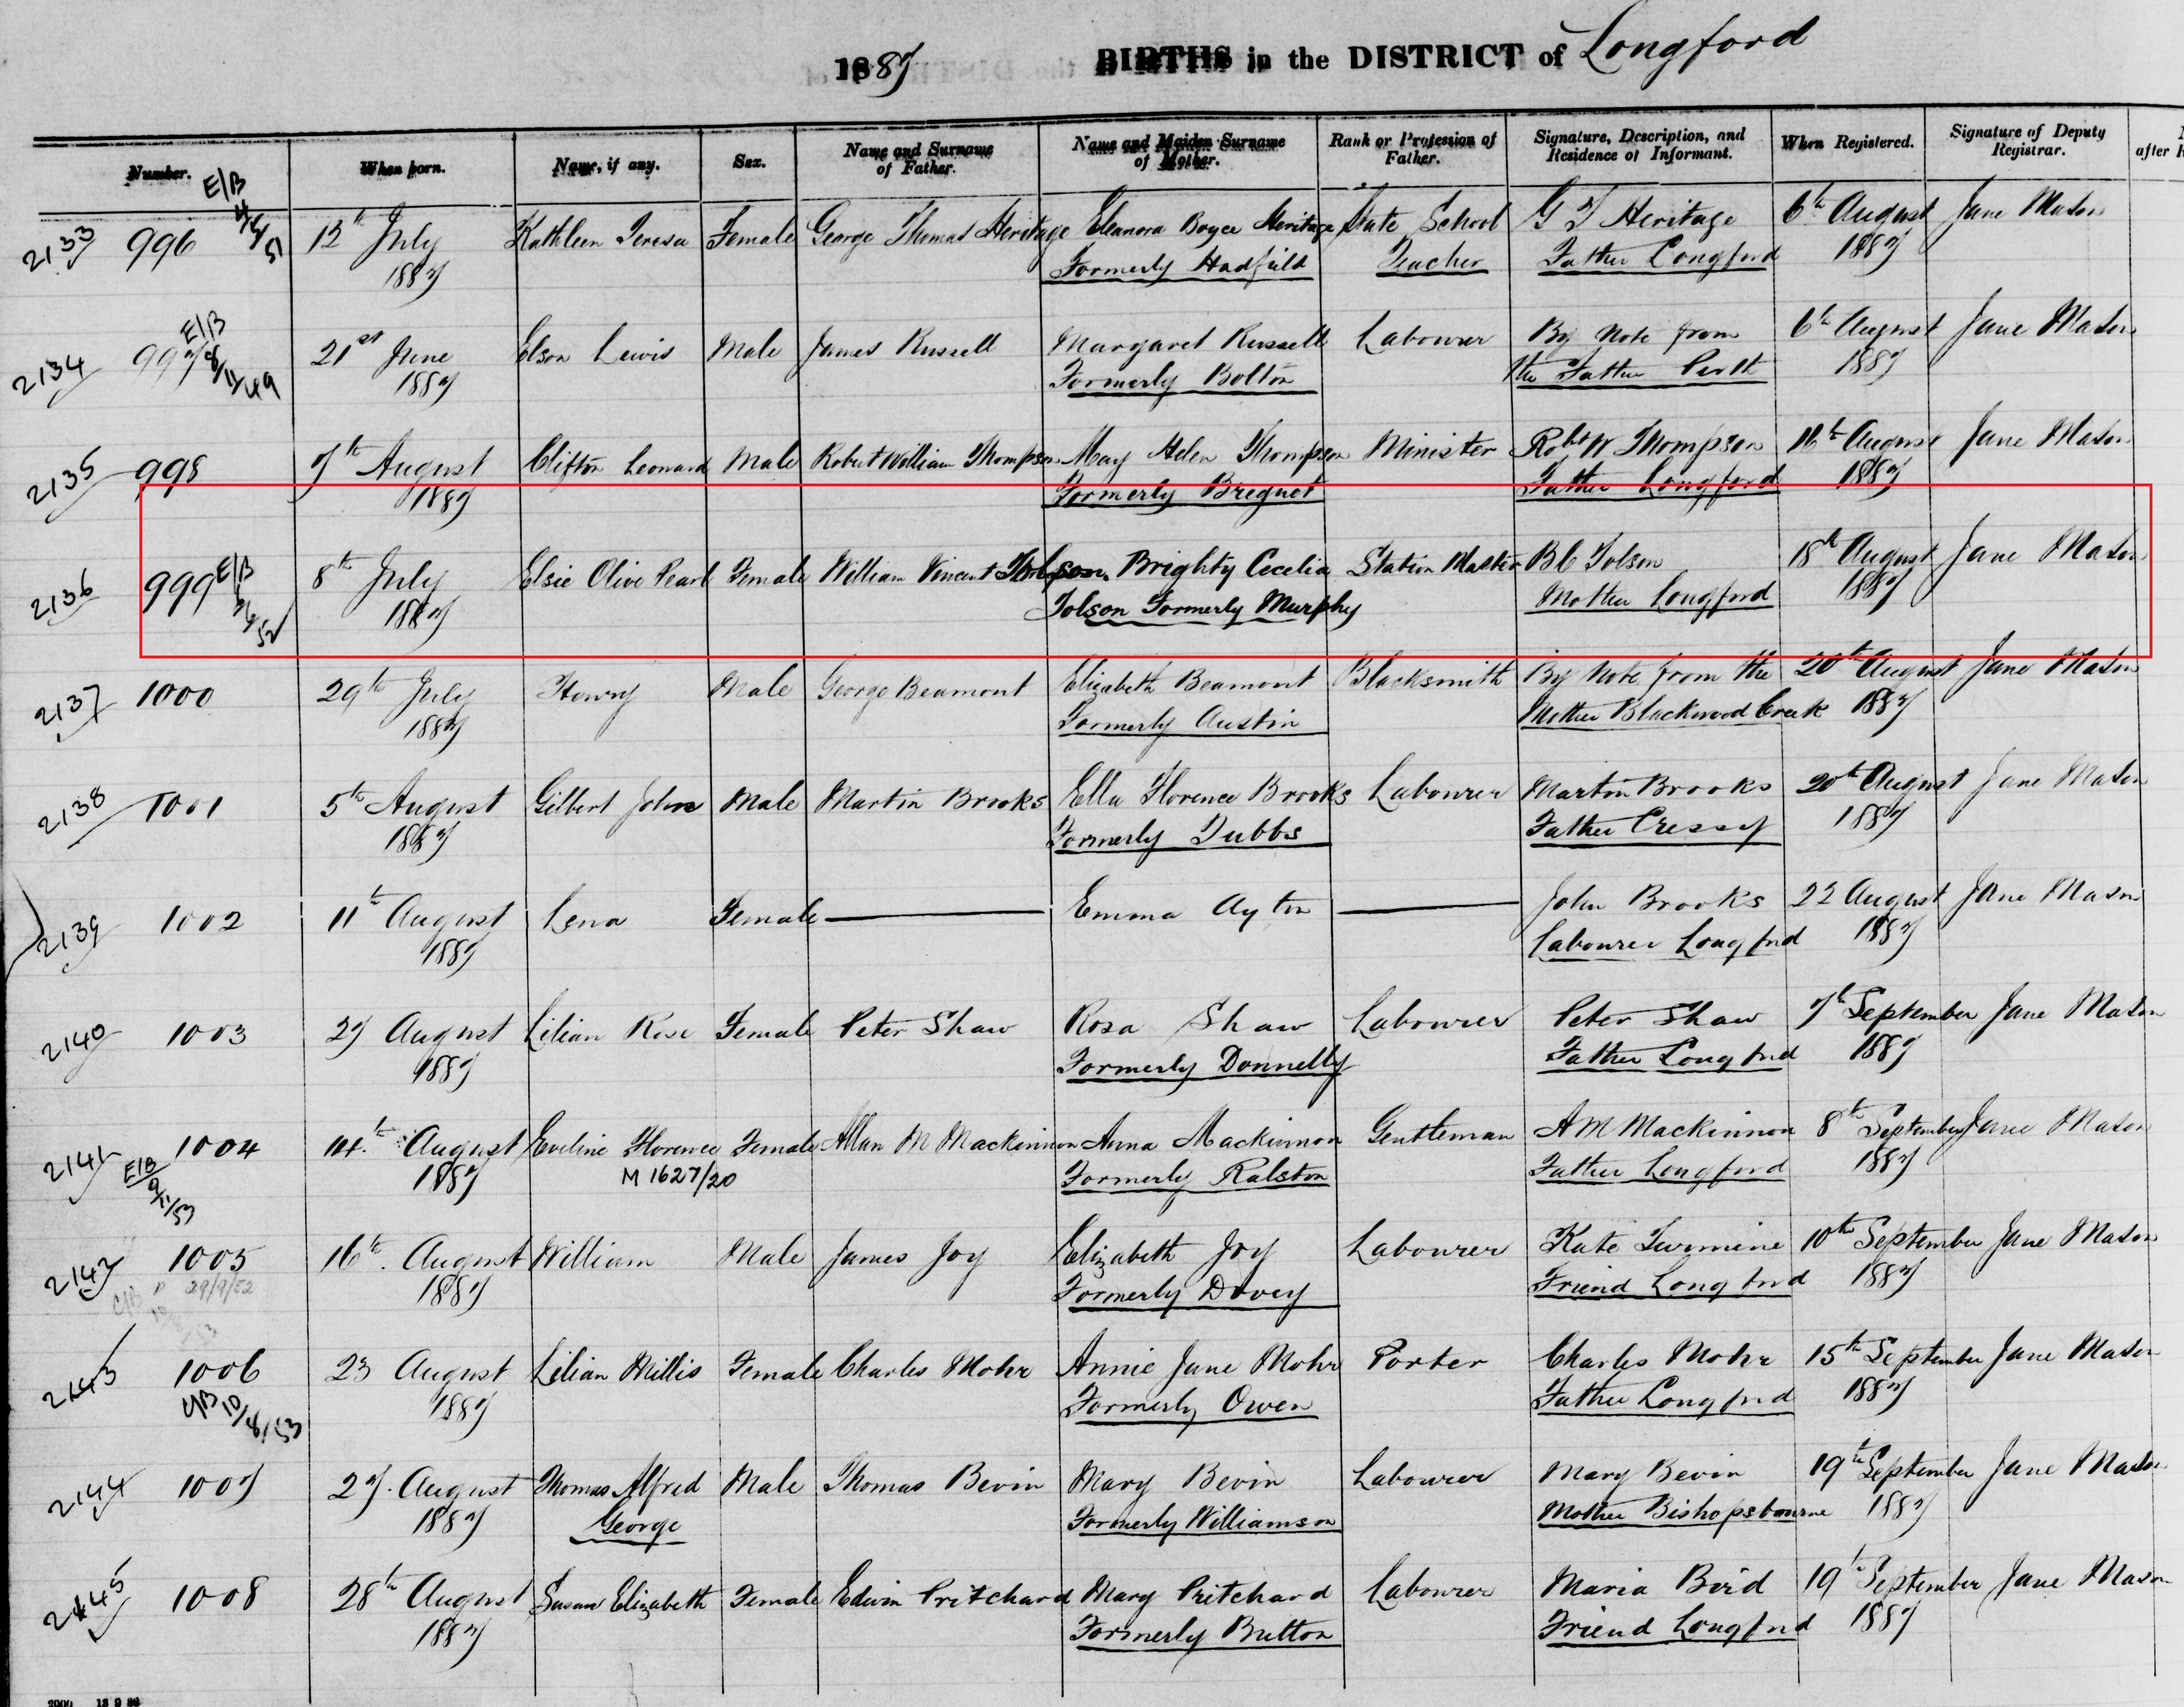 1887 BIRTHS in the DISTRICT of Longford
Number. When born. Name, if any. Sex. Name and Surname of Father. Name and Maiden Surname of Mother. Rank or Profession of Father. Signature, Description, and Residence of Informant. When Registered. Signature of Deputy Registrar.
after
E/B
2133 996 12th July Kathleen Teresa Female George Thomas Heritage Eleanora Boyce Heritage State School G T Heritage 6th August Jane Mason
1887 Formerly Hadfield Teacher Father Longford 1887
E/B
2134 997 8/11/49 21st June Elson Lewis Male James Russell Margaret Russell Labourer By Note from 6th August Jane Mason
1887 Formerly Bolton the Father Perth 1887
2135 998 7th August Clifton Leonard Male Robert William Thompson May Helen Thompson Minister Robt W Thompson 16th August Jane Mason
1887 Formerly Breguet Father Longford 1887
2136 999 E/B 8th July Elsie Olive Pearl Female William Vincent Tolson Brighty Cecelia Station Master B C Tolson 18th August Jane Mason
1887 Tolson Formerly Murphy Mother Longford 1887
2137 1000 29th July Henry Male George Beamont Elizabeth Beamont Blacksmith By Note from the 20th August Jane Mason
1887 Formerly Austin Mother Blackwood Creek 1887
2138 1001 5th August Gilbert John Male Martin Brooks Ella Florence Brooks Labourer Martin Brooks 20th August Jane Mason
1887 Formerly Dubbs Father Cressy 1887
2139 1002 11th August Lena Female Emma Ayton John Brooks 22 August Jane Mason
1887 Labourer Longford 1887
2140 1003 27 August Lilian Rose Female Peter Shaw Rosa Shaw Labourer Peter Shaw 7th September Jane Mason
1887 Formerly Donnelly Father Longford 1887
2141 1004 14th August Eveline Florence Female Allan M Mackinnon Anna Mackinnon Gentleman A M Mackinnon 8th September Jane Mason
E/B 9/1/53 1887 M 1627/20 Formerly Ralston Father Longford 1887
2142 1005 16th August William Male James Joy Elizabeth Joy Labourer Kate Turmine 10th September Jane Mason
29/9/52 1887 Formerly Davey Friend Longford 1887
2143 1006 23 August Lilian Millis Female Charles Mohr Annie Jane Mohr Porter Charles Mohr 15th September Jane Mason
10/8/53 1887 Formerly Owen Father Longford 1887
2144 1007 27 August Thomas Alfred Male Thomas Bevin Mary Bevin Labourer Mary Bevin 19th September Jane Mason
1887 George Formerly Williamson Mother Bishopsbourne 1887
2145 1008 28th August Susan Elizabeth Female Edwin Pritchard Mary Pritchard Labourer Maria Bird 19th September Jane Mason
1887 Formerly Button Friend Longford 1887